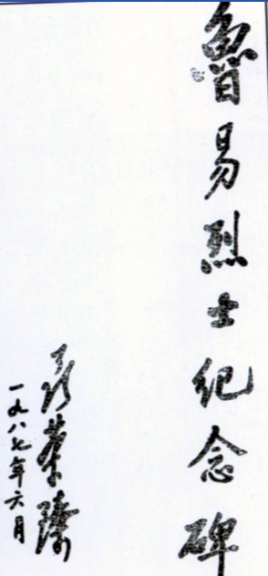 鲁易烈士纪念碑
聂荣臻
一九八七年六月